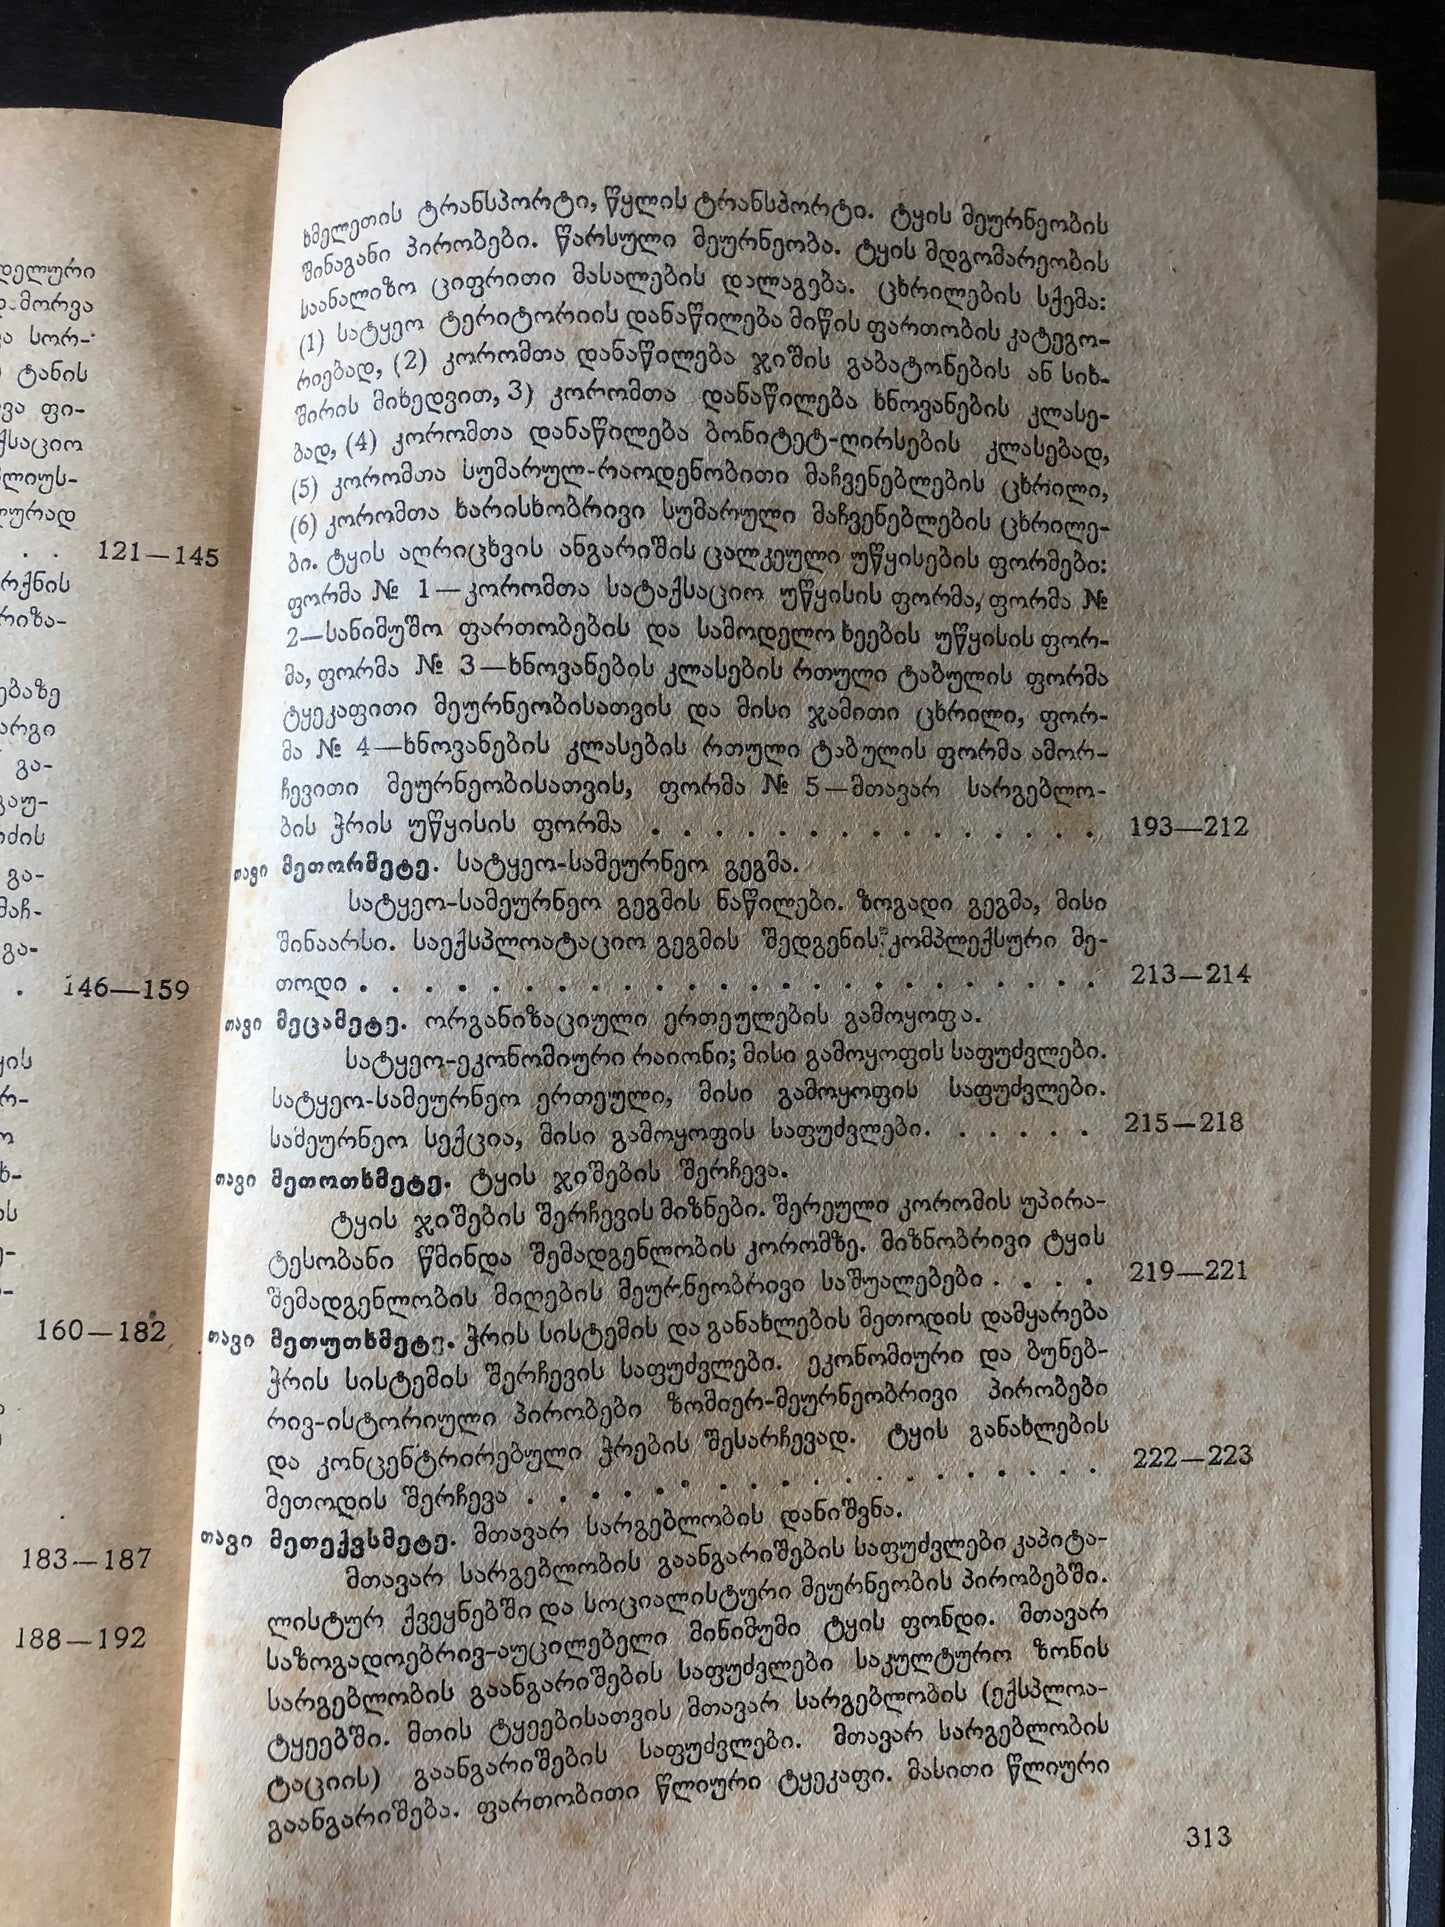 დელური
მორვა
ვა სორ-
ტანის
ვა ფი-
ქსაციო
ლიუს-
ლურად
. . 121—145
რქნის
რიზა-
ებაზე
არგი
გა-
გაუ-
იძის
გა-
მაჩ-
გა-
. 146—159
160—182
183—187
188—192
ხმელეთის ტრანსპორტი, წყლის ტრანსპორტი. ტყის მეურნეობის
შინაგანი პირობები. წარსული მეურნეობა. ტყის მდგომარეობის
საანალიზო ციფრითი მასალების დალაგება. ცხრილების სქემა:
(1) სატყეო ტერიტორიის დანაწილება მიწის ფართობის კატეგო-
რიებად, (2) კორომთა დანაწილება ჯიშის გაბატონების ან სიხ-
შირის მიხედვით, 3) კორომთა დანაწილება ხნოვანების კლასე-
ბად, (4) კორომთა დანაწილება ბონიტეტ-ღირსების კლასებად,
(5) კორომთა სუმარულ-რაოდენობითი მაჩვენებლების ცხრილი,
(6) კორომთა ხარისხობრივი სუმარული მაჩვენებლების ცხრილე-
ბი. ტყის აღრიცხვის ანგარიშის ცალკეული უწყისების ფორმები:
ფორმა № 1—კორომთა სატაქსაციო უწყისის ფორმა, ფორმა №
2—სანიმუშო ფართობების და სამოდელო ხეების უწყისის ფორ-
მა, ფორმა № 3—ხნოვანების კლასების რთული ტაბულის ფორმა
ტყეკაფითი მეურნეობისათვის და მისი ჯამითი ცხრილი, ფორ-
მა № 4—ხნოვანების კლასების რთული ტაბულის ფორმა ამორ-
ჩევითი მეურნეობისათვის, ფორმა № 5—მთავარ სარგებლო-
ბის ჭრის უწყისის ფორმა . . . . . . . . . . . . . . 193—212
თავი მეთორმეტე. სატყეო-სამეურნეო გეგმა.
სატყეო-სამეურნეო გეგმის ნაწილები. ზოგადი გეგმა, მისი
შინაარსი. საექსპლოატაციო გეგმის შედგენის კომპლექსური მე-
თოდი . . . . . . . . . . . . . . . . . . . . . . . 213—214
თავი მეცამეტე. ორგანიზაციული ერთეულების გამოყოფა.
სატყეო-ეკონომიური რაიონი; მისი გამოყოფის საფუძვლები.
სატყეო-სამეურნეო ერთეული, მისი გამოყოფის საფუძვლები.
სამეურნეო სექცია, მისი გამოყოფის საფუძვლები. . . . . . 215—218
თავი მეთოთხმეტე. ტყის ჯიშების შერჩევა.
ტყის ჯიშების შერჩევის მიზნები. შერეული კორომის უპირა-
ტესობანი წმინდა შემადგენლობის კორომზე. მიზნობრივი ტყის
შემადგენლობის მიღების მეურნეობრივი საშუალებები . . . . 219—221
თავი მეთუთხმეტე. ჭრის სისტემის და განახლების მეთოდის დამყარება
ჭრის სისტემის შერჩევის საფუძვლები. ეკონომიური და ბუნებ-
რივ-ისტორიული პირობები ზომიერ-მეურნეობრივი პირობები
და კონცენტრირებული ჭრების შესარჩევად. ტყის განახლების
მეთოდის შერჩევა . . . . . . . . . . . . . . . . . . 222—223
თავი მეთექვსმეტე. მთავარ სარგებლობის დანიშვნა.
მთავარ სარგებლობის გაანგარიშების საფუძვლები კაპიტა-
ლისტურ ქვეყნებში და სოციალისტური მეურნეობის პირობებში.
საზოგადოებრივ-აუცილებელი მინიმუმი ტყის ფონდი. მთავარ
სარგებლობის გაანგარიშების საფუძვლები საკულტურო ზონის
ტყეებში. მთის ტყეებისათვის მთავარ სარგებლობის (ექსპლოა-
ტაციის) გაანგარიშების საფუძვლები. მთავარ სარგებლობის
გაანგარიშება. ფართობითი წლიური ტყეკაფი. მასითი წლიური
313